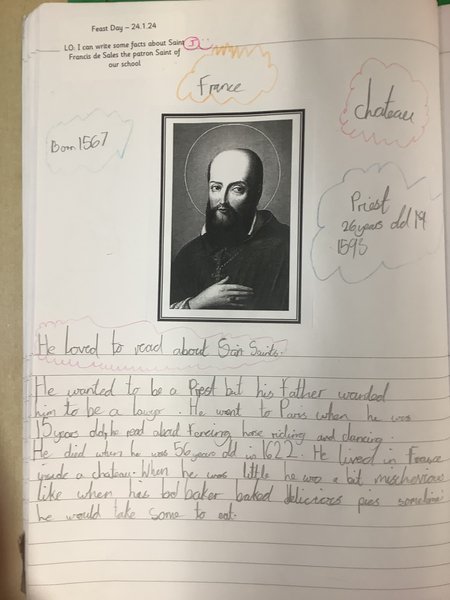 Feast Day – 24.1.24
LO: I can write some facts about Saint I
Francis de Sales the patron Saint of
our school
France
chateau
Born 1567
Priest
26 years old 19
1593
He loved to read about Sain Saints.
He wanted to be a Priest but his father wanded
him to be a lawyer. He went to Paris when he was
15 years old, he read about Fencing, horse riding and dancing.
He died when he was 56 years old in 1622. He lived in France
inside a chateau. When he was little he was a bit mischevious
like when his baker baked delicious pies sometimes
he would take some to eat.